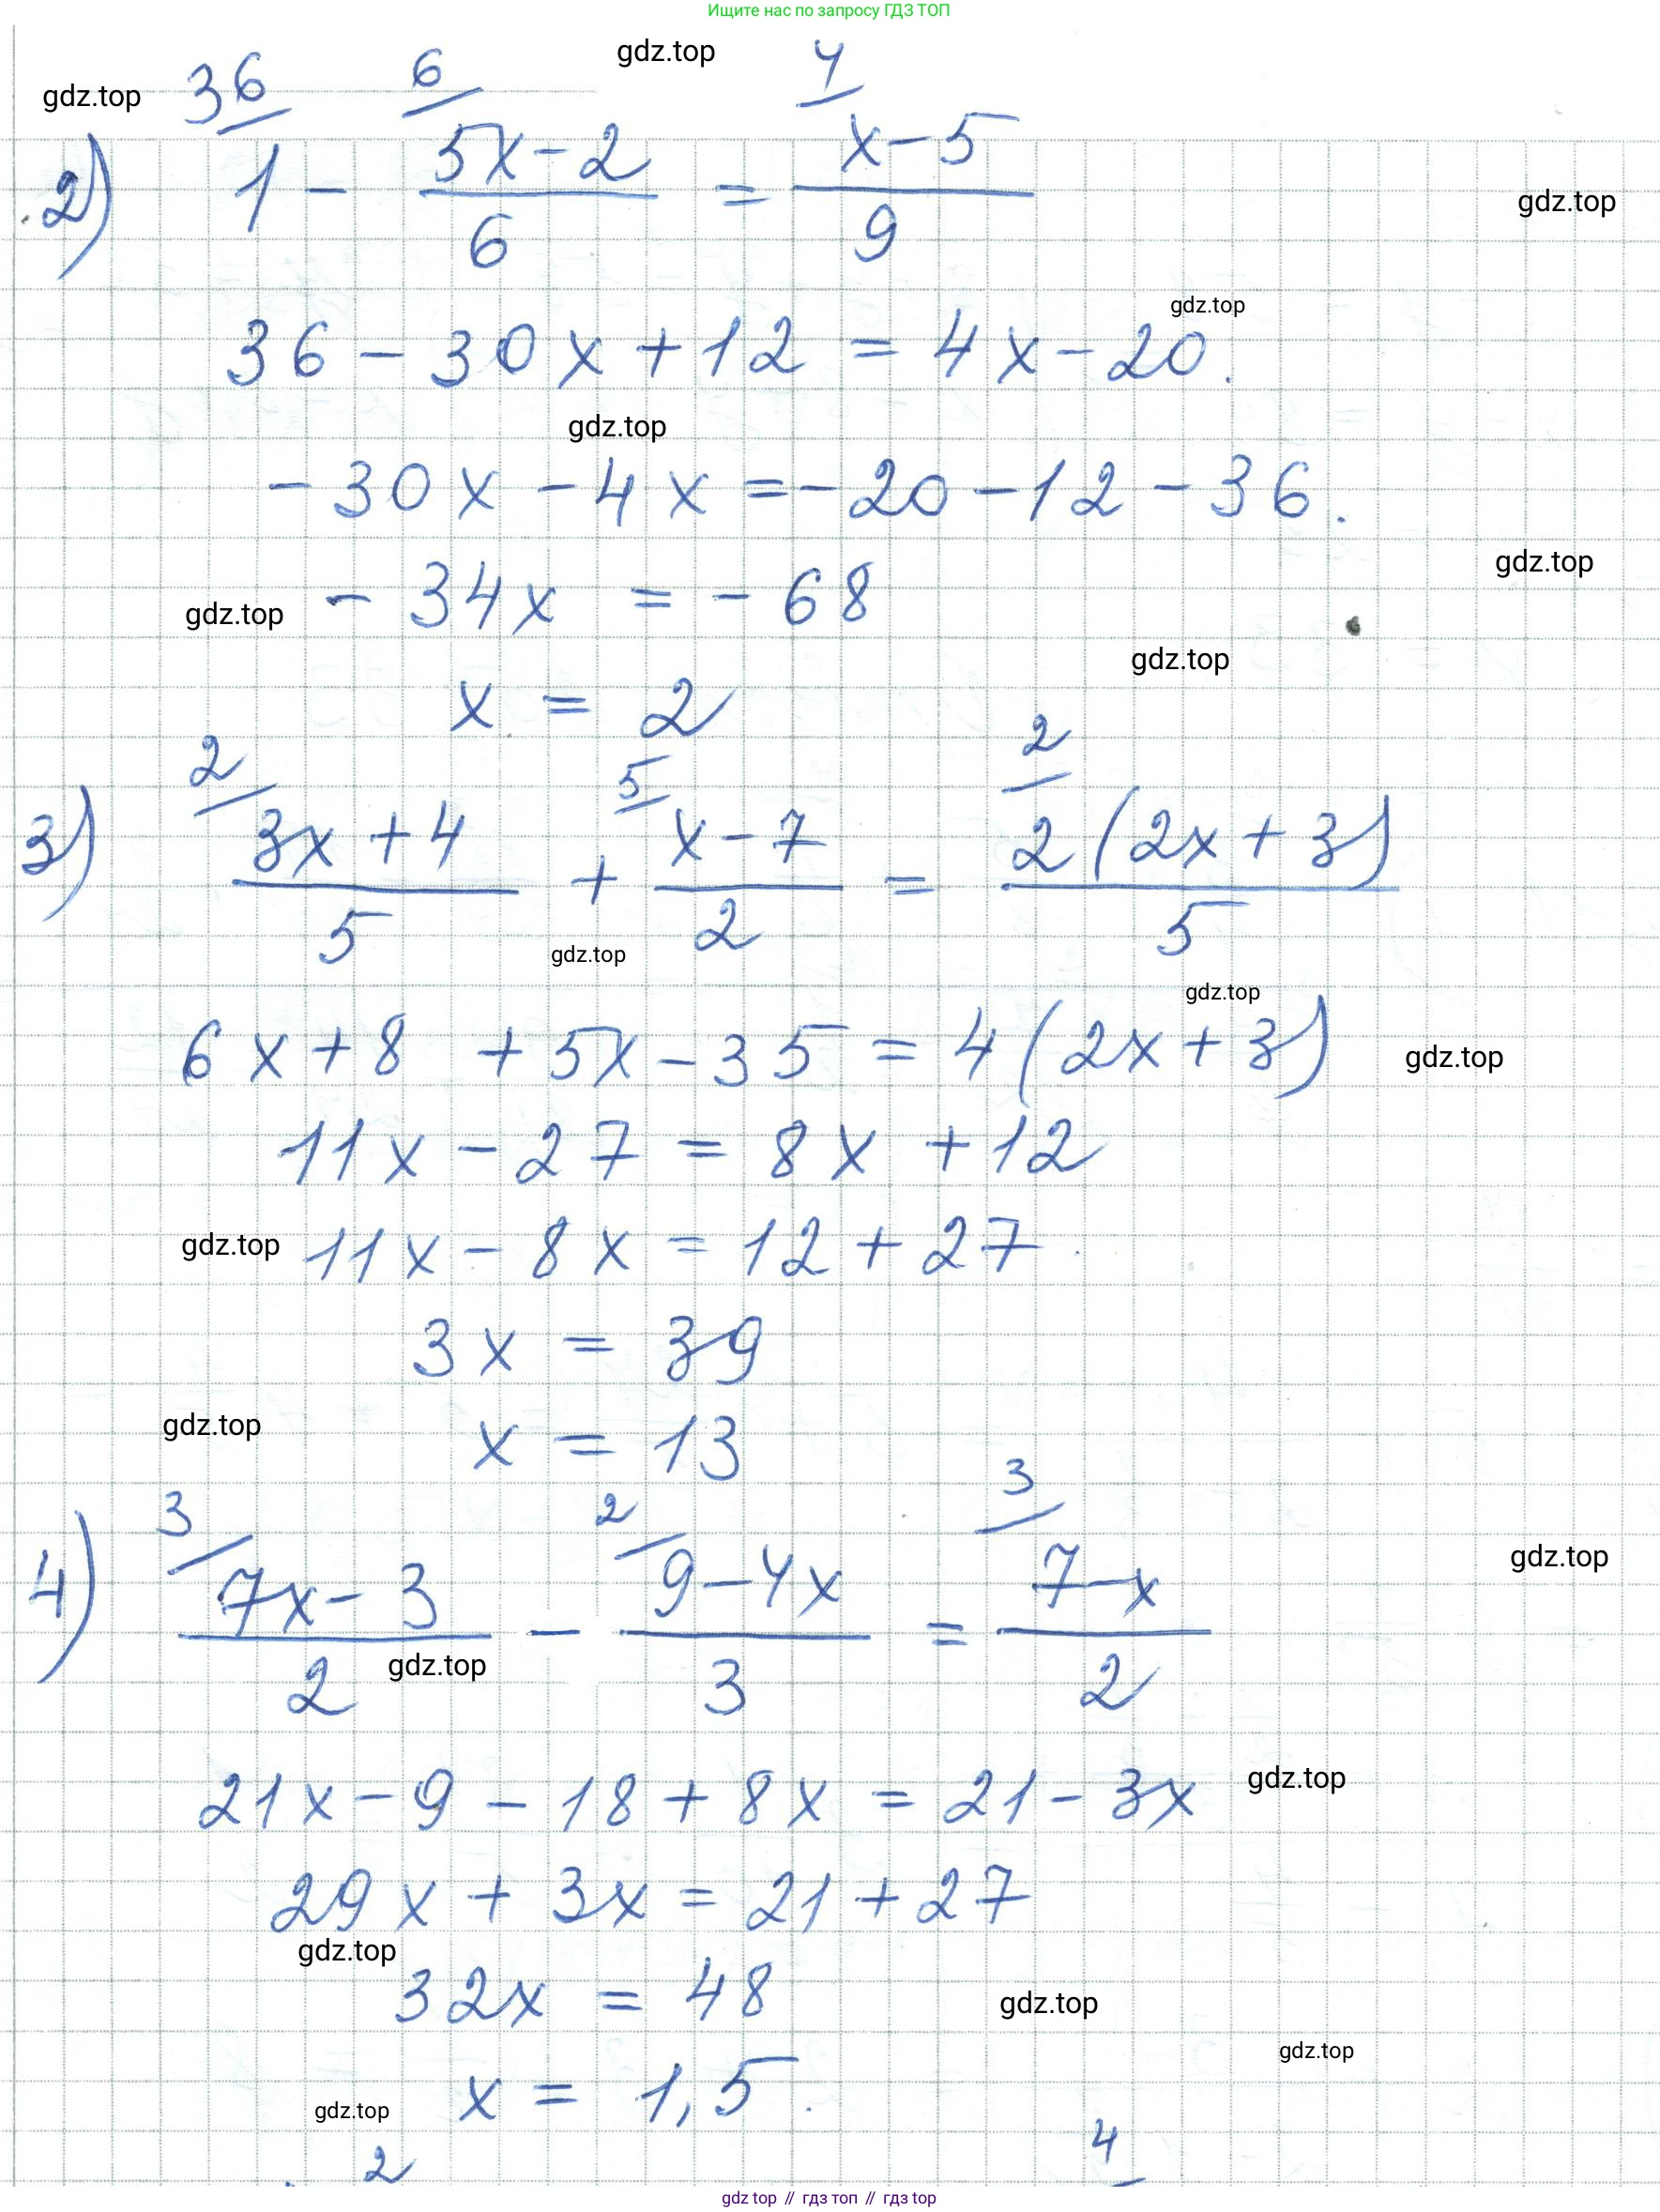 Ищите нас по запросу ГДЗ ТОП
gdz.top
36/ 6/ 4/
gdz.top
2) 1 - (5x-2)/6 = (x-5)/9
gdz.top
gdz.top
36 - 30x + 12 = 4x - 20.
gdz.top
-30x - 4x = -20 - 12 - 36.
gdz.top
gdz.top
-34x = -68
gdz.top
x = 2
2/ 5/ 2/
3) (3x+4)/5 + (x-7)/2 = 2(2x+3)/5
gdz.top
gdz.top
6x + 8 + 5x - 35 = 4(2x+3)
gdz.top
11x - 27 = 8x + 12
gdz.top
11x - 8x = 12 + 27.
3x = 39
gdz.top
x = 13
3/ 2/ 3/
gdz.top
4) (7x-3)/2 - (9-4x)/3 = (7-x)/2
gdz.top
gdz.top
21x - 9 - 18 + 8x = 21 - 3x
29x + 3x = 21 + 27
gdz.top
32x = 48
gdz.top
gdz.top
x = 1,5.
gdz.top
2 4
gdz top // гдз топ // gdz top